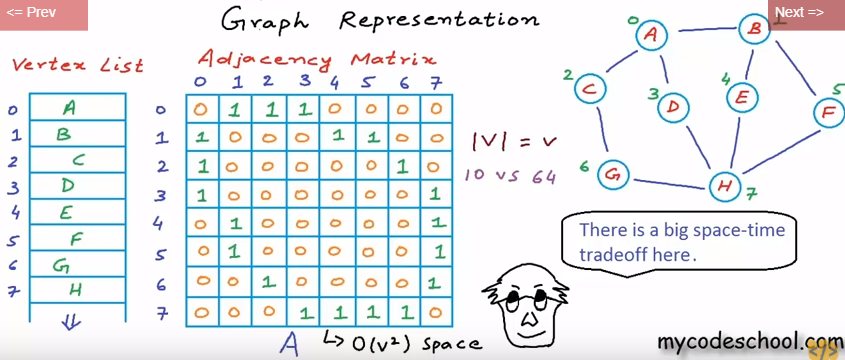 <= Prev
Graph Representation
Next =>
Vertex List
0 A
1 B
2 C
3 D
4 E
5 F
6 G
7 H
Adjacency Matrix
0 1 2 3 4 5 6 7
0 0 1 1 1 0 0 0 0
1 1 0 0 0 1 1 0 0
2 1 0 0 0 0 0 1 0
3 1 0 0 0 0 0 0 1
4 0 1 0 0 0 0 0 1
5 0 1 0 0 0 0 0 1
6 0 0 1 0 0 0 0 1
7 0 0 0 1 1 1 1 0
A ↳ O(v²) space
|V| = v
10 vs 64
0 A
B 1
2 C
3 D
4 E
5 F
6 G
H 7
There is a big space-time
tradeoff here.
mycodeschool.com
</>